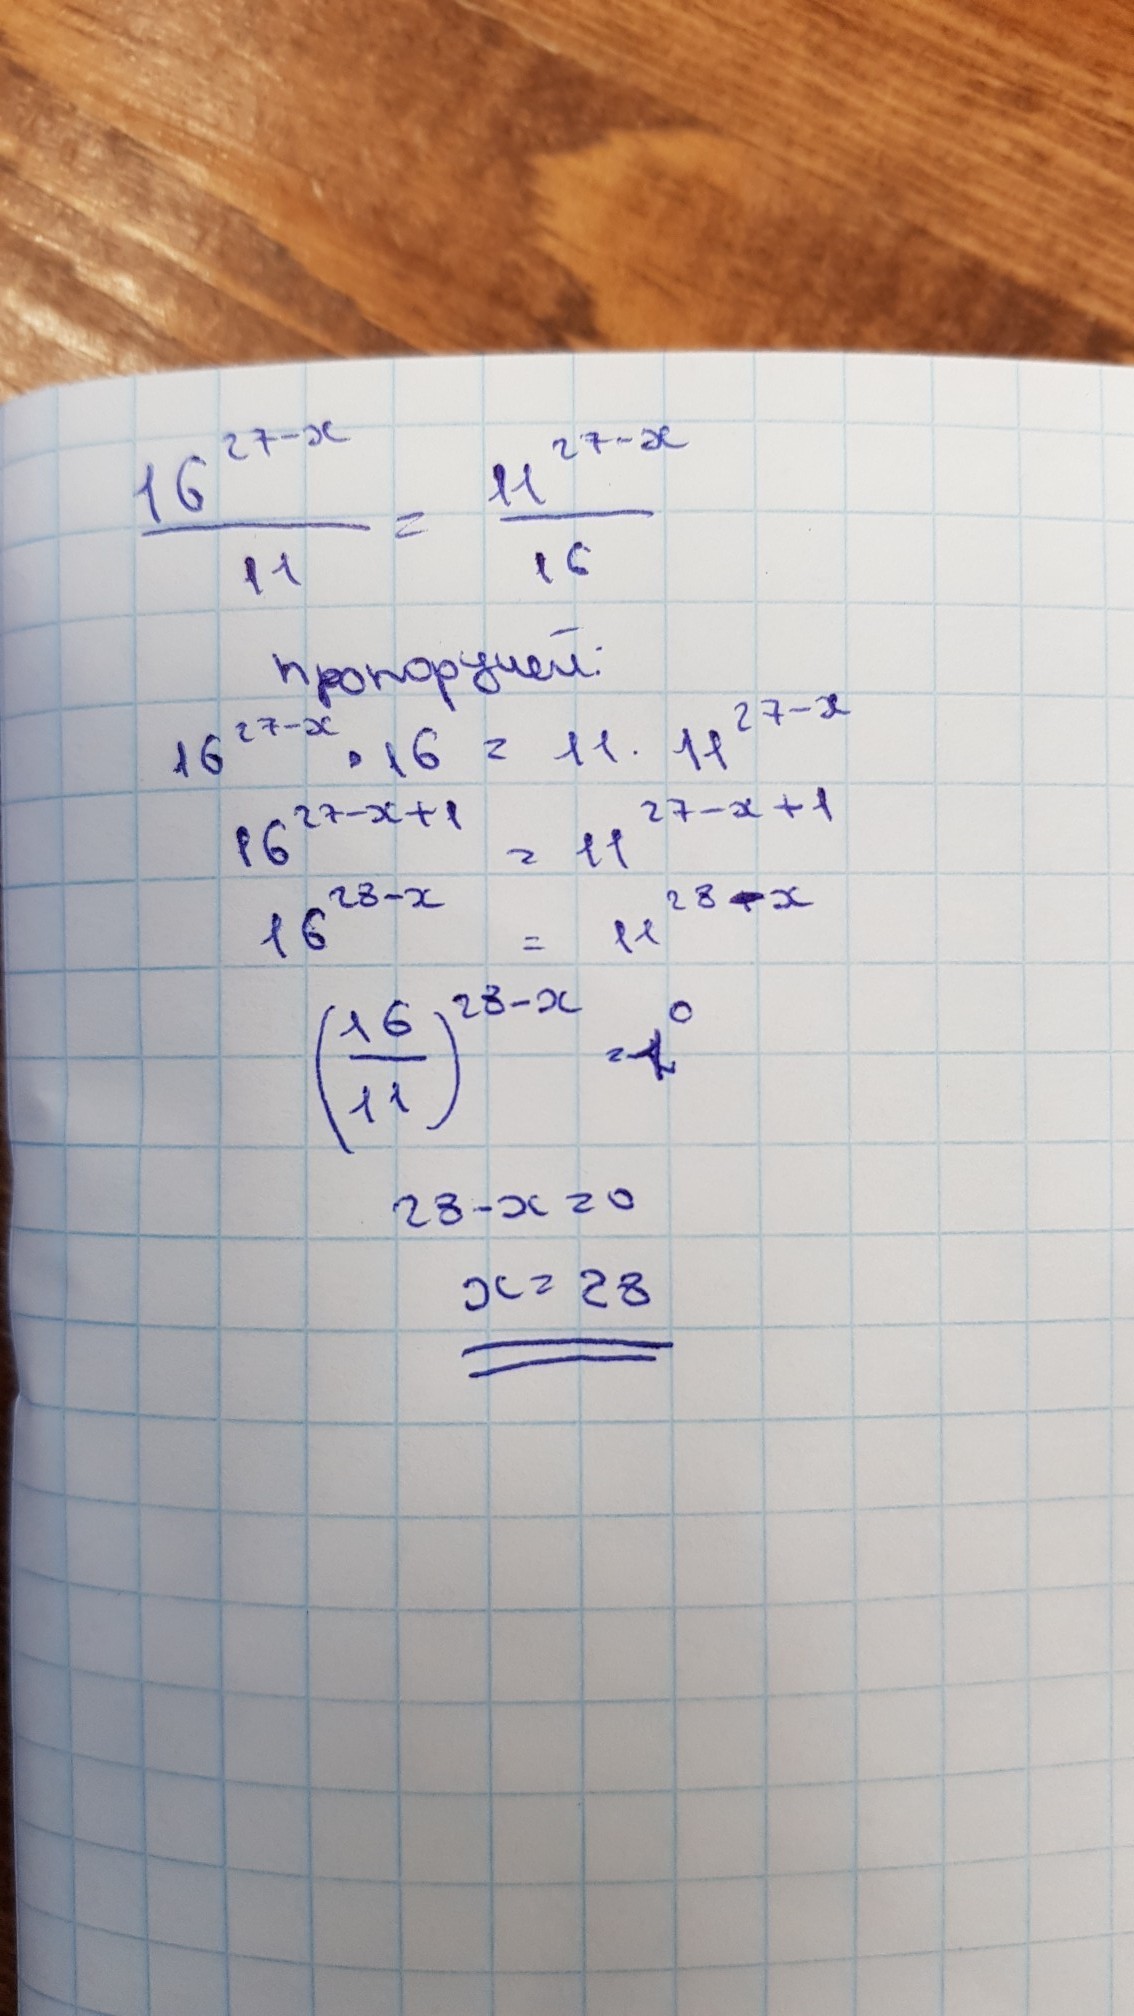 16^(27-x) / 11 = 11^(27-x) / 16
пропорцией:
16^(27-x) · 16 = 11 · 11^(27-x)
16^(27-x+1) = 11^(27-x+1)
16^(28-x) = 11^(28-x)
(16/11)^(28-x) = 1^0
28-x=0
x=28